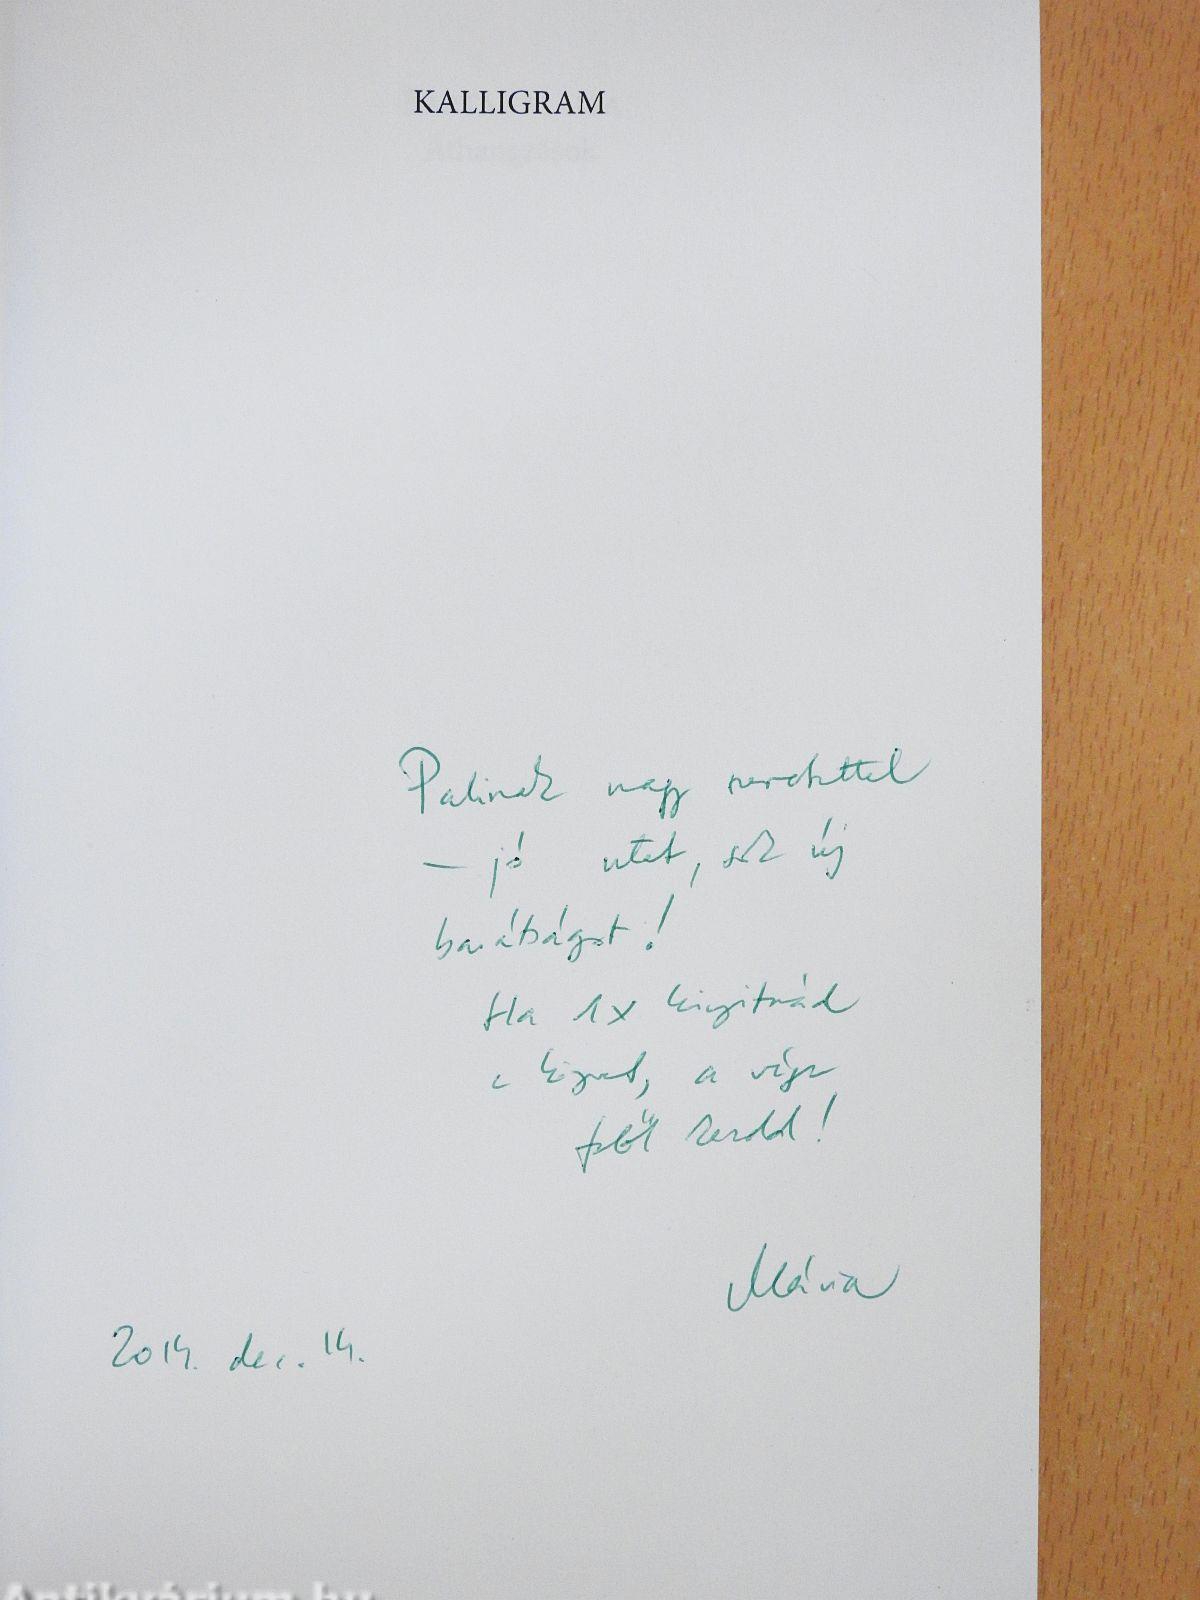 KALLIGRAM
Áthangzások
Palinak nagy szeretettel
– jó utat, sok új
barátságot!
Ha 1x kinyitnád
a könyvet, a vége
felől kezdd!
Mária
2014. dec. 14.
Antikvárium.hu